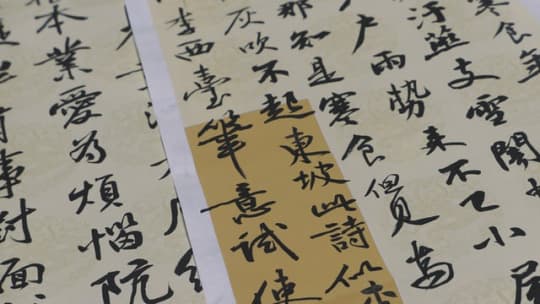 寒食年
汙燕支雪闇
戶雨勢來不已小屋
那知是寒食但見烏
灰吹不起東坡此詩似
李西臺筆意試使
本業愛為煩惱阮
事對面